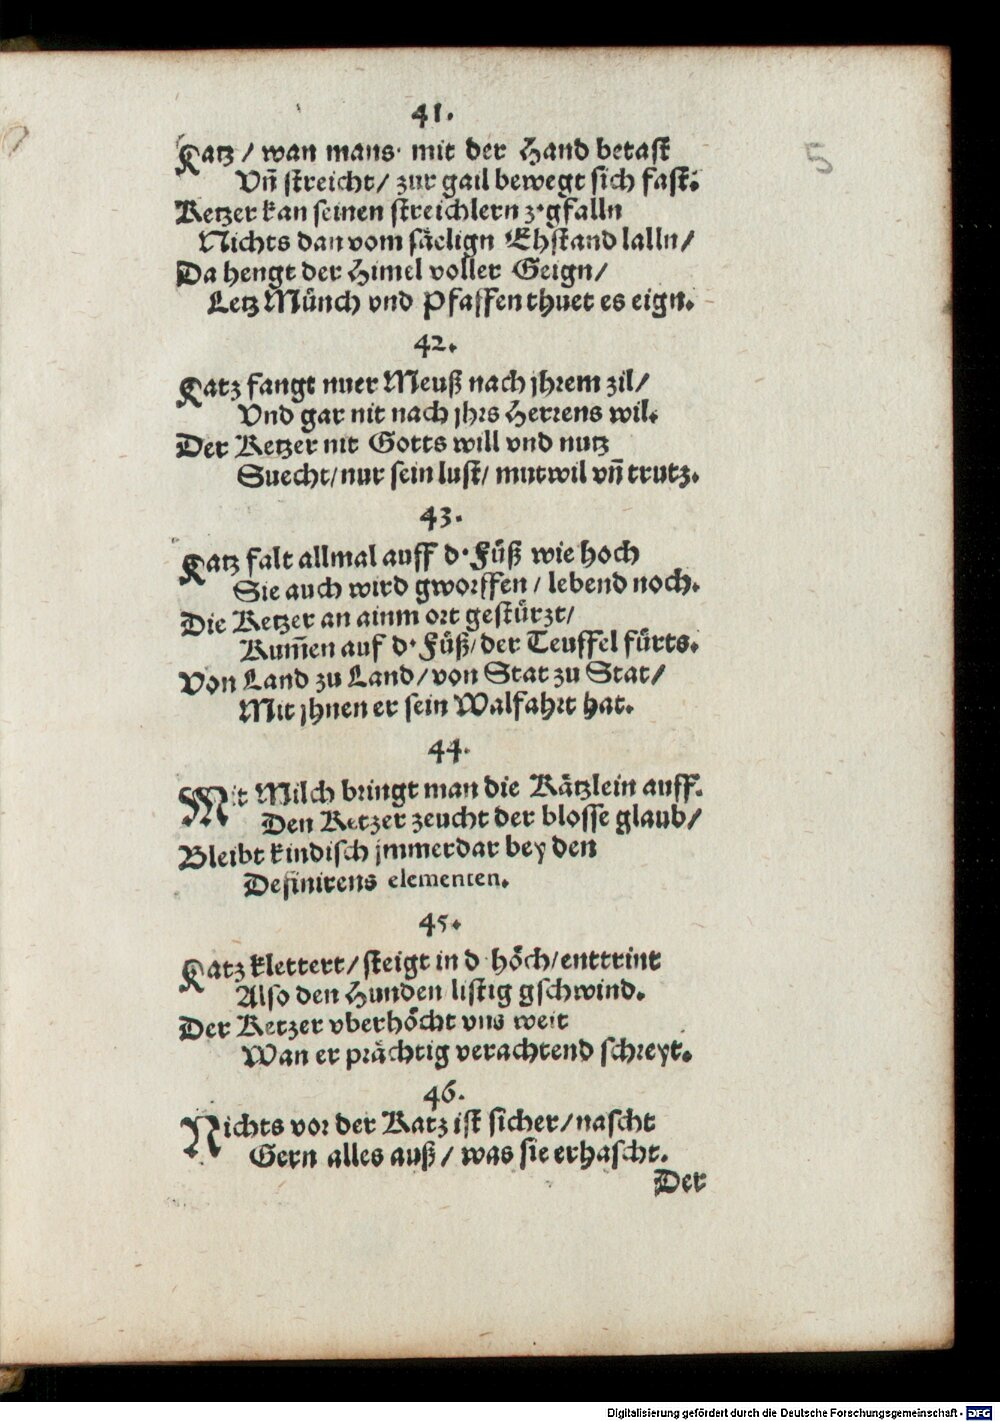 41.
Katz / wan mans mit der Hand betast
Vñ streicht / zur gail bewegt sich fast.
Ketzer kan seinen streichlern z'gfalln
Nichts dan vom säelign Ehstand lalln /
Da hengt der Himel voller Geign /
Letz Münch vnd Pfaffen thuet es eign.
42.
Katz fangt nuer Meuß nach jhrem zil /
Vnd gar nit nach jhrs Herrens wil.
Der Ketzer nit Gotts will vnd nutz
Suecht / nur sein lust / mutwil vñ trutz.
43.
Katz falt allmal auff d' Füß wie hoch
Sie auch wird gworffen / lebend noch.
Die Ketzer an ainm ort gestürzt /
Kum̃en auf d' Füß / der Teuffel fürts.
Von Land zu Land / von Stat zu Stat /
Mit jhnen er sein Walfahrt hat.
44.
Mit Milch bringt man die Kätzlein auff.
Den Ketzer zeucht der blosse glaub /
Bleibt kindisch jmmerdar bey den
Definirens elementen.
45.
Katz klettert / steigt in d' höch / enttrint
Also den Hunden listig gschwind.
Der Ketzer vberhöcht vns weit
Wan er prächtig verachtend schreyt.
46.
Nichts vor der Katz ist sicher / nascht
Gern alles auß / was sie erhascht.
Der
5
Digitalisierung gefördert durch die Deutsche Forschungsgemeinschaft - DFG